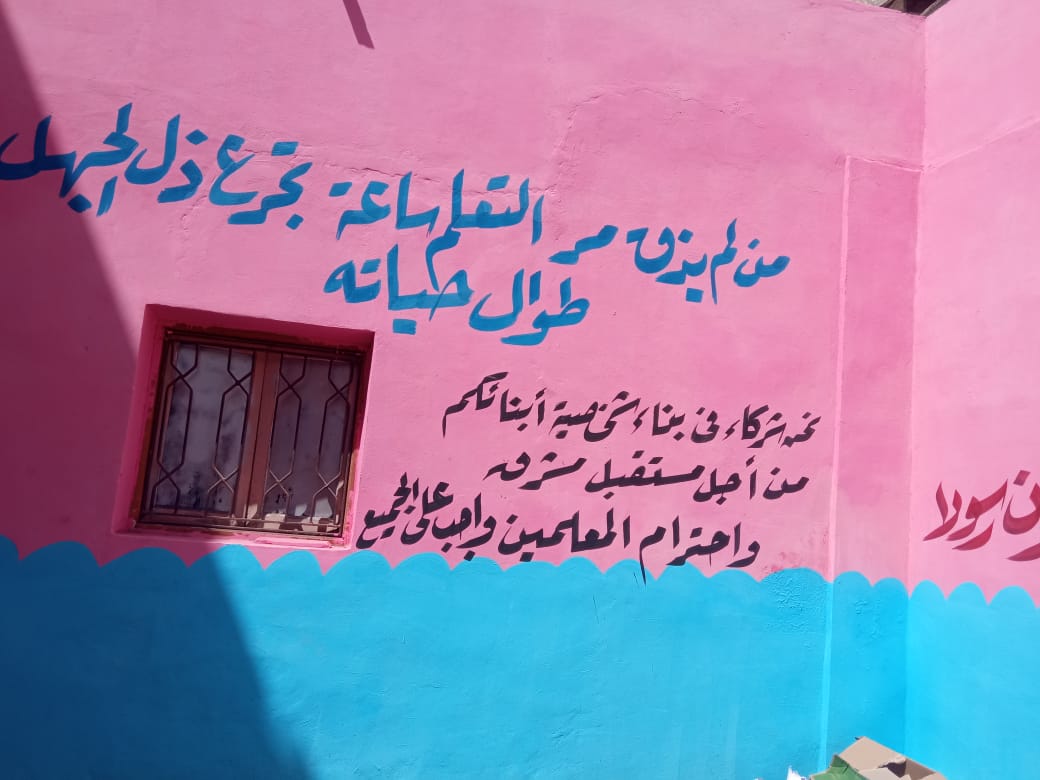 من لم يذق مر التعلم ساعة تجرع ذل الجهل
طوال حياته
نحن شركاء فى بناء شخصية أبنائكم
من أجل مستقبل مشرق
واحترام المعلمين واجب على الجميع
ن رسولا